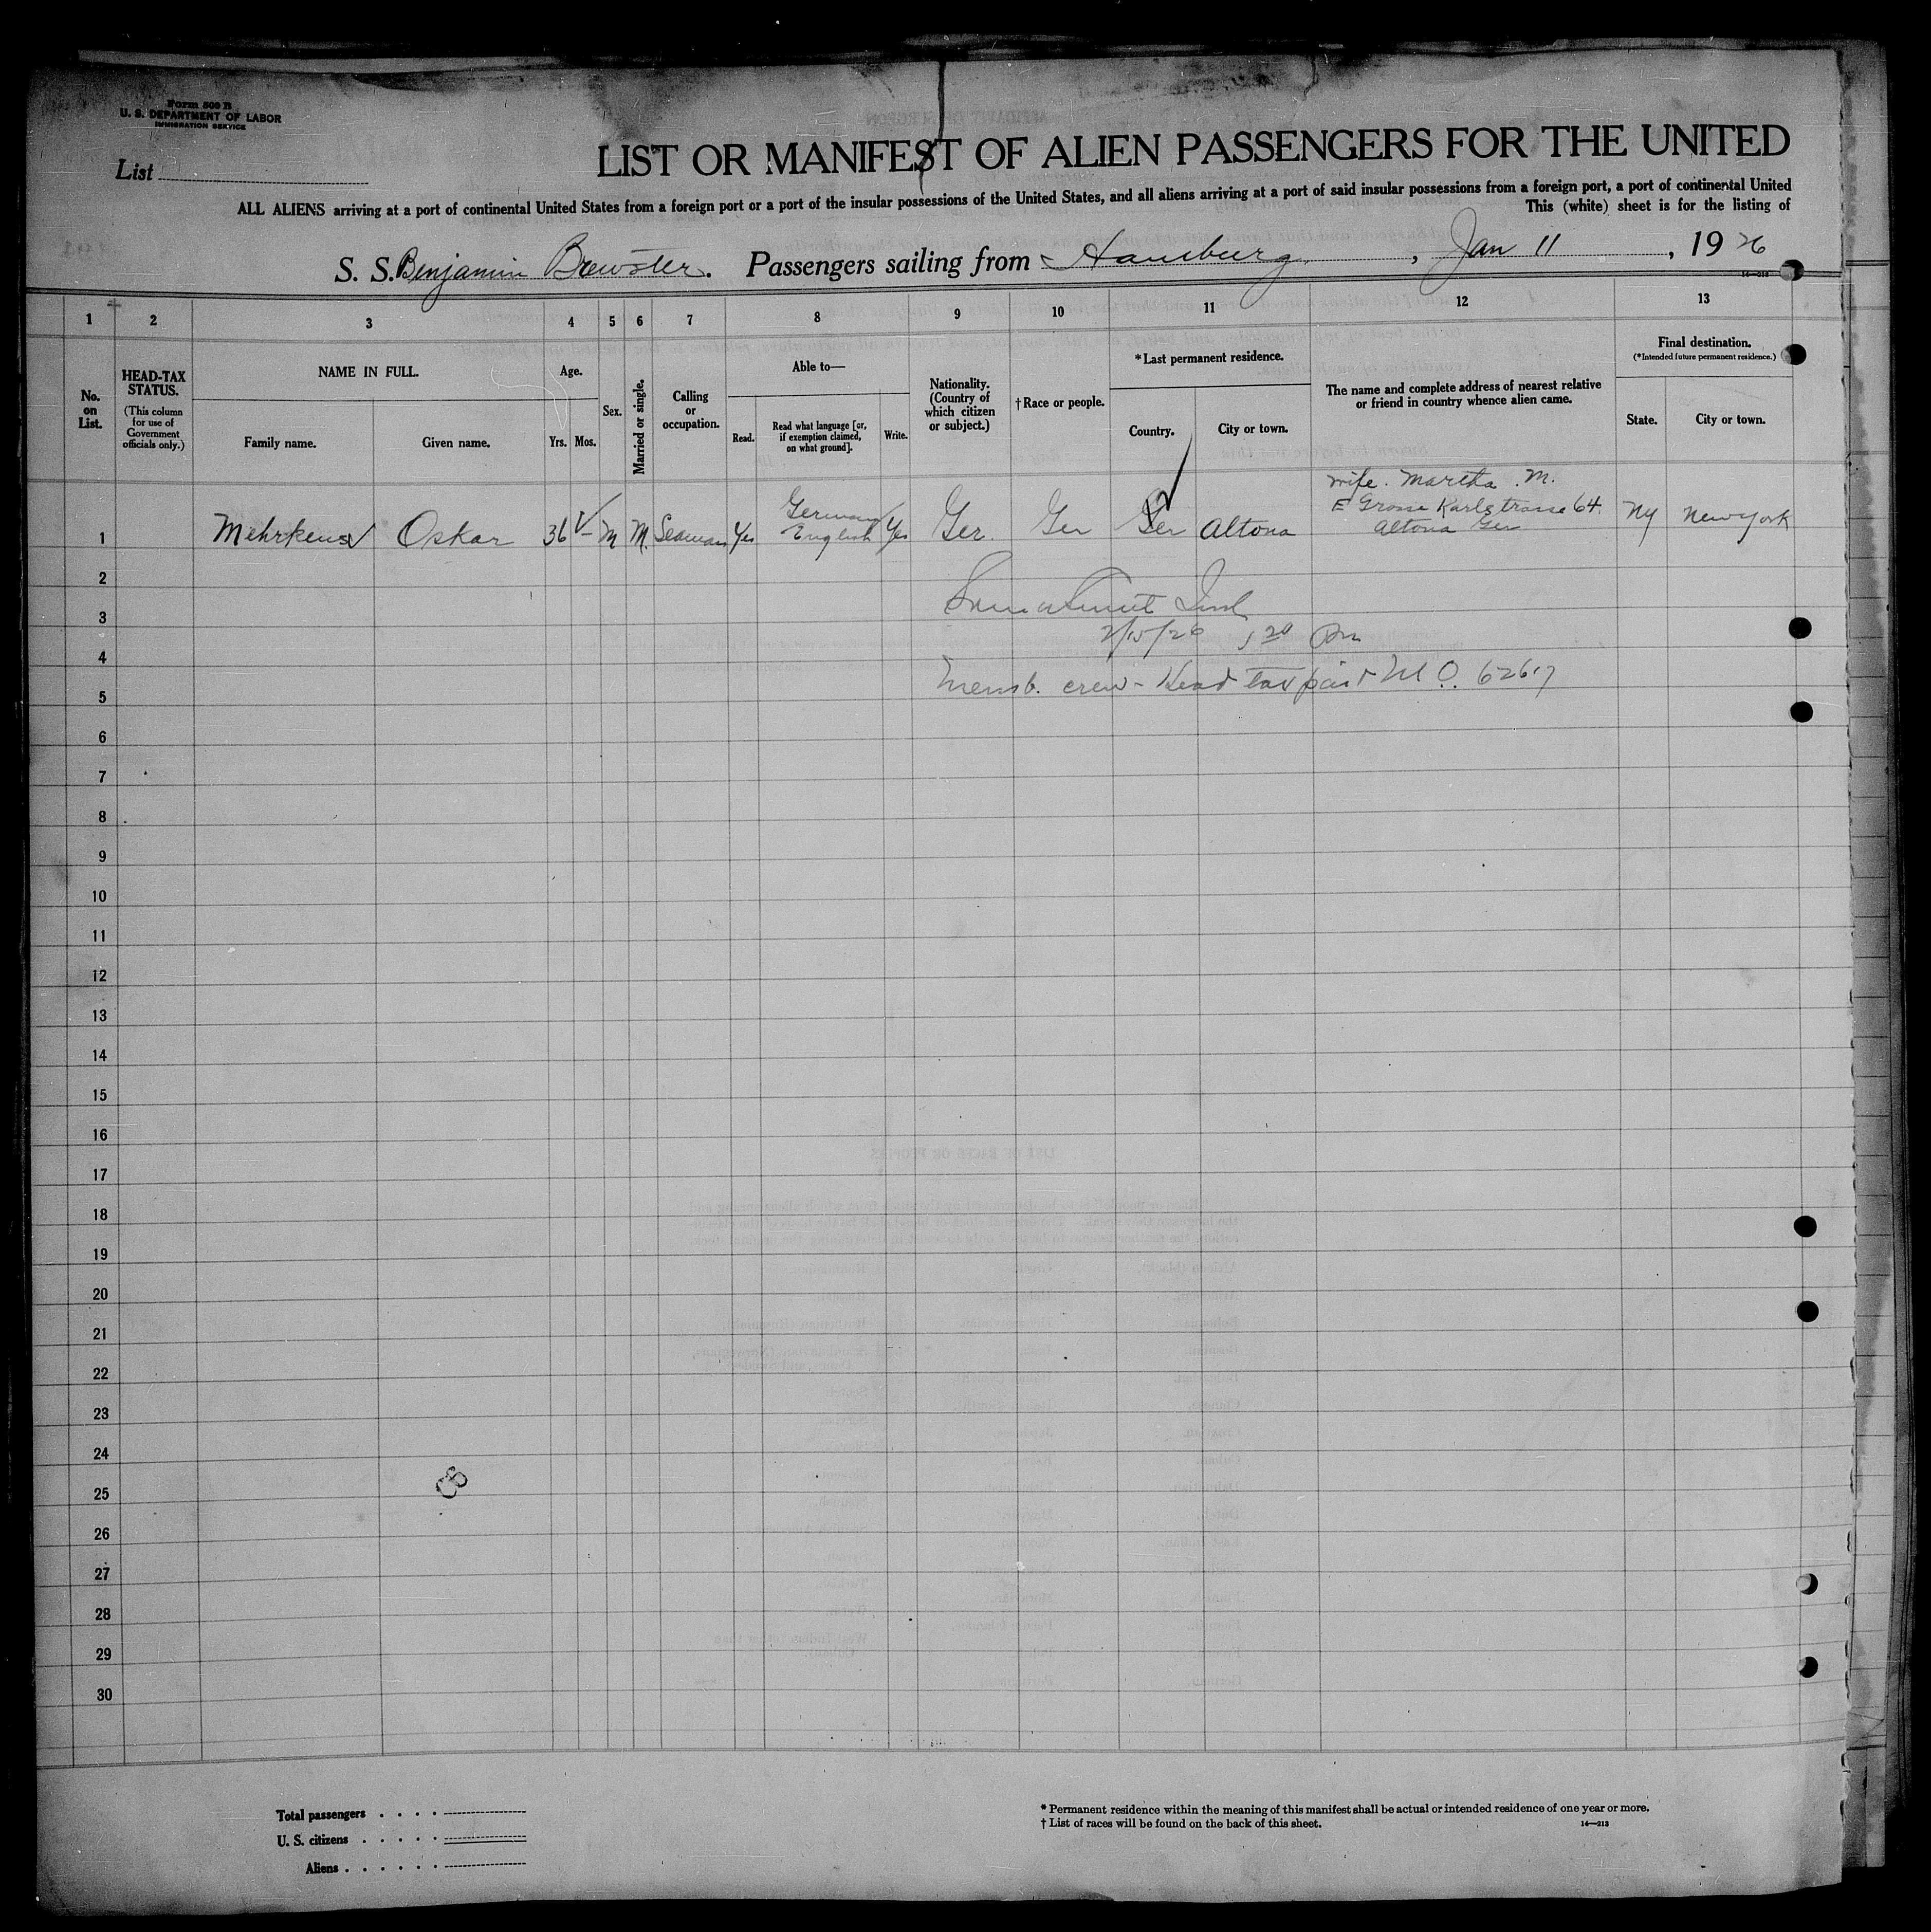 Form 500 B
U. S. DEPARTMENT OF LABOR
IMMIGRATION SERVICE
List
LIST OR MANIFEST OF ALIEN PASSENGERS FOR THE UNITED
ALL ALIENS arriving at a port of continental United States from a foreign port or a port of the insular possessions of the United States, and all aliens arriving at a port of said insular possessions from a foreign port, a port of continental United
This (white) sheet is for the listing of
S. S. Benjamin Brewster. Passengers sailing from Hamburg, Jan 11, 1926
14—213
1 2 3 4 5 6 7 8 9 10 11 12 13
No. on List.
HEAD-TAX STATUS.
(This column for use of Government officials only.)
NAME IN FULL.
Family name.
Given name.
Age.
Yrs. Mos.
Sex.
Married or single.
Calling or occupation.
Able to—
Read.
Read what language [or, if exemption claimed, on what ground].
Write.
Nationality. (Country of which citizen or subject.)
† Race or people.
* Last permanent residence.
Country.
City or town.
The name and complete address of nearest relative or friend in country whence alien came.
Final destination.
(* Intended future permanent residence.)
State.
City or town.
1 Mehrkens Oskar 36 M M. Seaman Yes German English Yes Ger. Ger Ger Altona wife. Martha. M. Grosse Karlstrasse 64. Altona Ger NY New York
2
3
2/15/26
4
Memb. crew - Head tax paid M O. 62617
5
6
7
8
9
10
11
12
13
14
15
16
17
18
19
20
21
22
23
24
25
26
27
28
29
30
Total passengers . . . .
U. S. citizens . . . . .
Aliens . . . . . .
* Permanent residence within the meaning of this manifest shall be actual or intended residence of one year or more.
† List of races will be found on the back of this sheet.
14—213